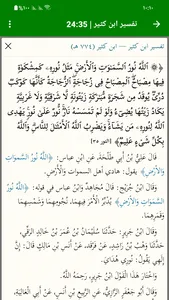 ١٠:١٠
تفسير ابن كثير | 24:35
تفسير ابن كثير — ابن كثير (٧٧٤ هـ)
﴿ ۞ ٱللَّهُ نُورُ ٱلسَّمَـٰوَ ٰ⁠تِ وَٱلۡأَرۡضِۚ مَثَلُ نُورِهِۦ كَمِشۡكَوٰةࣲ
فِیهَا مِصۡبَاحٌۖ ٱلۡمِصۡبَاحُ فِی زُجَاجَةٍۖ ٱلزُّجَاجَةُ كَأَنَّهَا كَوۡكَبࣱ
دُرِّیࣱّ یُوقَدُ مِن شَجَرَةࣲ مُّبَـٰرَكَةࣲ زَیۡتُونَةࣲ لَّا شَرۡقِیَّةࣲ وَلَا غَرۡبِیَّةࣲ
یَكَادُ زَیۡتُهَا یُضِیۤءُ وَلَوۡ لَمۡ تَمۡسَسۡهُ نَارࣱۚ نُّورٌ عَلَىٰ نُورࣲۚ یَهۡدِی
ٱللَّهُ لِنُورِهِۦ مَن یَشَاۤءُۚ وَیَضۡرِبُ ٱللَّهُ ٱلۡأَمۡثَـٰلَ لِلنَّاسِۗ وَٱللَّهُ
بِكُلِّ شَیۡءٍ عَلِیمࣱ﴾ [النور ٣٥]
قَالَ عَلِيُّ بْنُ أَبِي طَلْحَةَ، عَنِ ابْنِ عَبَّاسٍ: ﴿اللَّهُ نُورُ السَّمَوَاتِ
وَالأرْضِ﴾ يَقُولُ: هَادِي أَهْلِ السموات وَالْأَرْضِ.
وَقَالَ ابْنُ جُرَيْج: قَالَ مُجَاهِدٌ وَابْنُ عَبَّاسٍ فِي قَوْلِهِ: ﴿اللَّهُ نُورُ
السَّمَوَاتِ وَالأرْضِ﴾ يُدَبِّرُ الْأَمْرَ فِيهِمَا، نُجُومِهِمَا وَشَمْسِهِمَا
وَقَمَرِهِمَا.
وَقَالَ ابْنُ جَرِيرٍ: حَدَّثَنَا سُلَيْمَانُ بْنُ عُمَرَ بْنِ خَالِدٍ الرَّقِّي،
حَدَّثَنَا وَهْبُ بْنُ رَاشِدٍ، عَنْ فَرْقَدٍ، عَنْ أَنَسِ بْنِ مَالِكٍ قَالَ: إِنَّ
إِلَهِي يَقُولُ: نُورِي هُدَايَ.
وَاخْتَارَ هَذَا الْقَوْلَ ابْنُ جَرِيرٍ، رَحِمَهُ اللَّهُ.